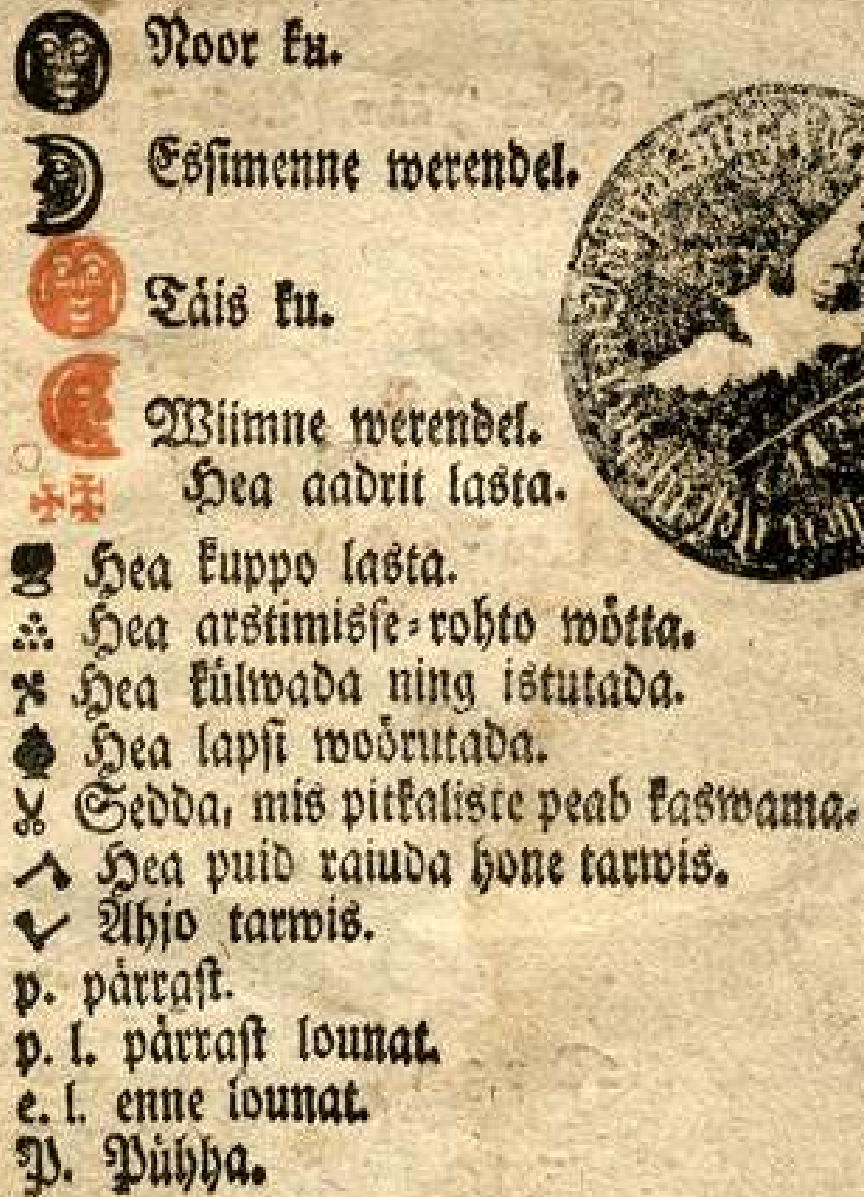 Noor ku.
Essimenne werendel.
Täis ku.
Wiimne werendel.
Hea aadrit lasta.
Hea kuppo lasta.
Hea arstimisse-rohto wötta.
Hea külwada ning istutada.
Hea lapsi woörutada.
Sedda, mis pitkaliste peab kaswama.
Hea puid raiuda hone tarwis.
Ahjo tarwis.
p. pärrast.
p. l. pärrast lounat.
e. l. enne lounat.
P. Pühha.